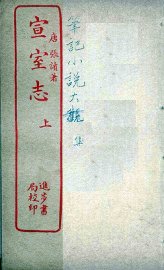 唐張讀著
宣室志
上
進步書局校印
筆記小說大觀
集